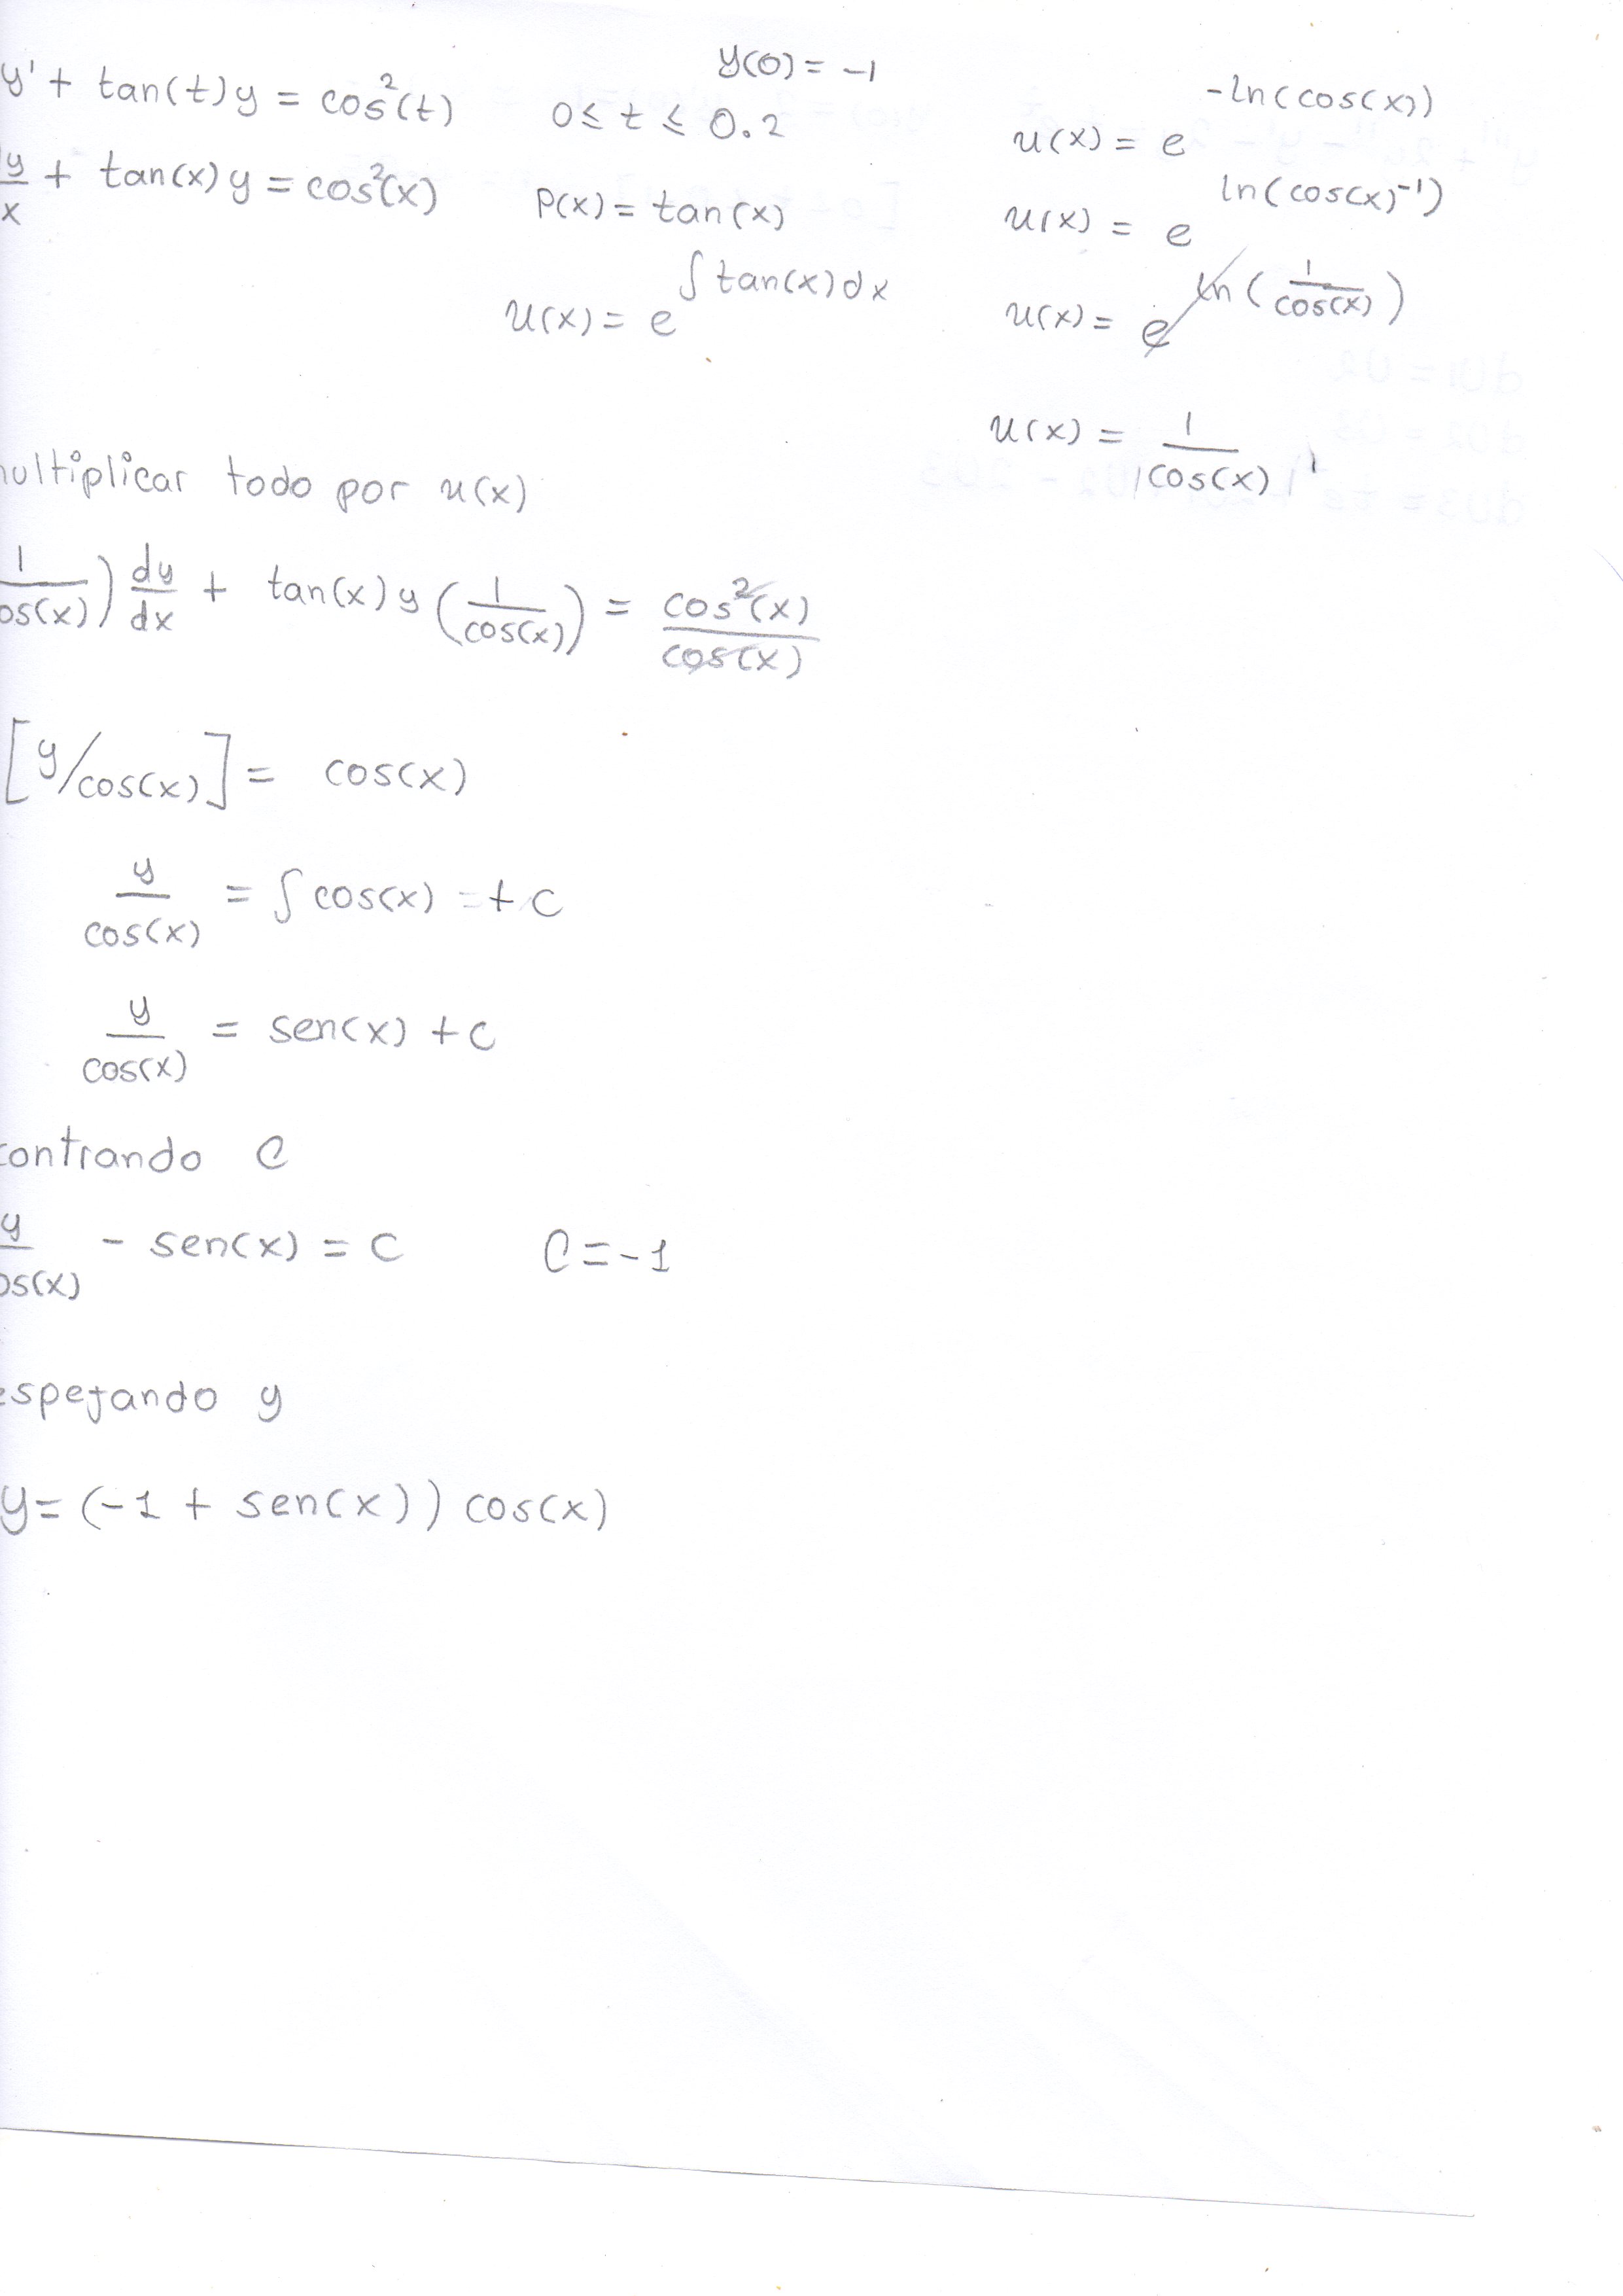 y' + tan(t)y = cos²(t)
y(0) = -1
0 ≤ t ≤ 0.2
y/x + tan(x)y = cos²(x)
P(x) = tan(x)
u(x) = e^∫tan(x)dx
u(x) = e^-ln(cos(x))
u(x) = e^ln(cos(x)^-1)
u(x) = e^ln(1/cos(x))
u(x) = 1/cos(x)
ultiplicar todo por u(x)
1/os(x)) dy/dx + tan(x)y (1/cos(x)) = cos²(x)/cos(x)
[y/cos(x)] = cos(x)
y/cos(x) = ∫cos(x) + c
y/cos(x) = sen(x) + c
contrando C
y/os(x) - sen(x) = c
C = -1
espejando y
y = (-1 + sen(x)) cos(x)